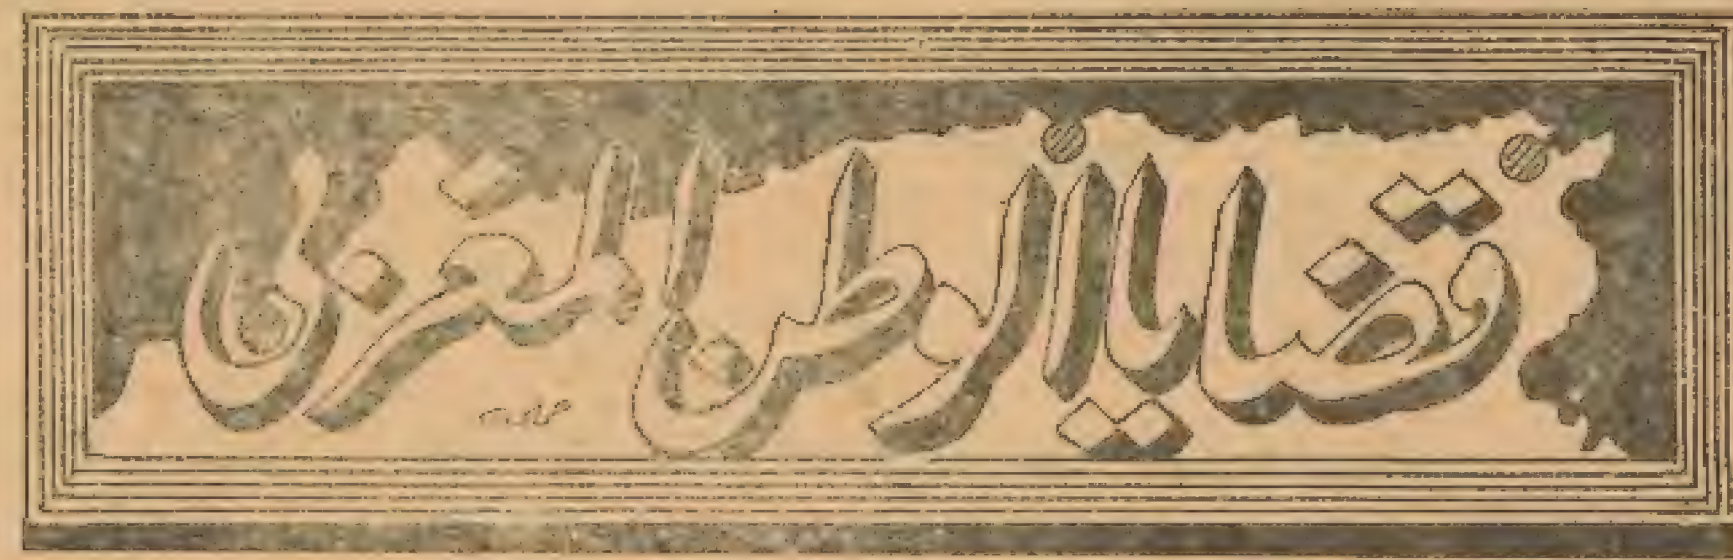 قضايا الوطن المغربي